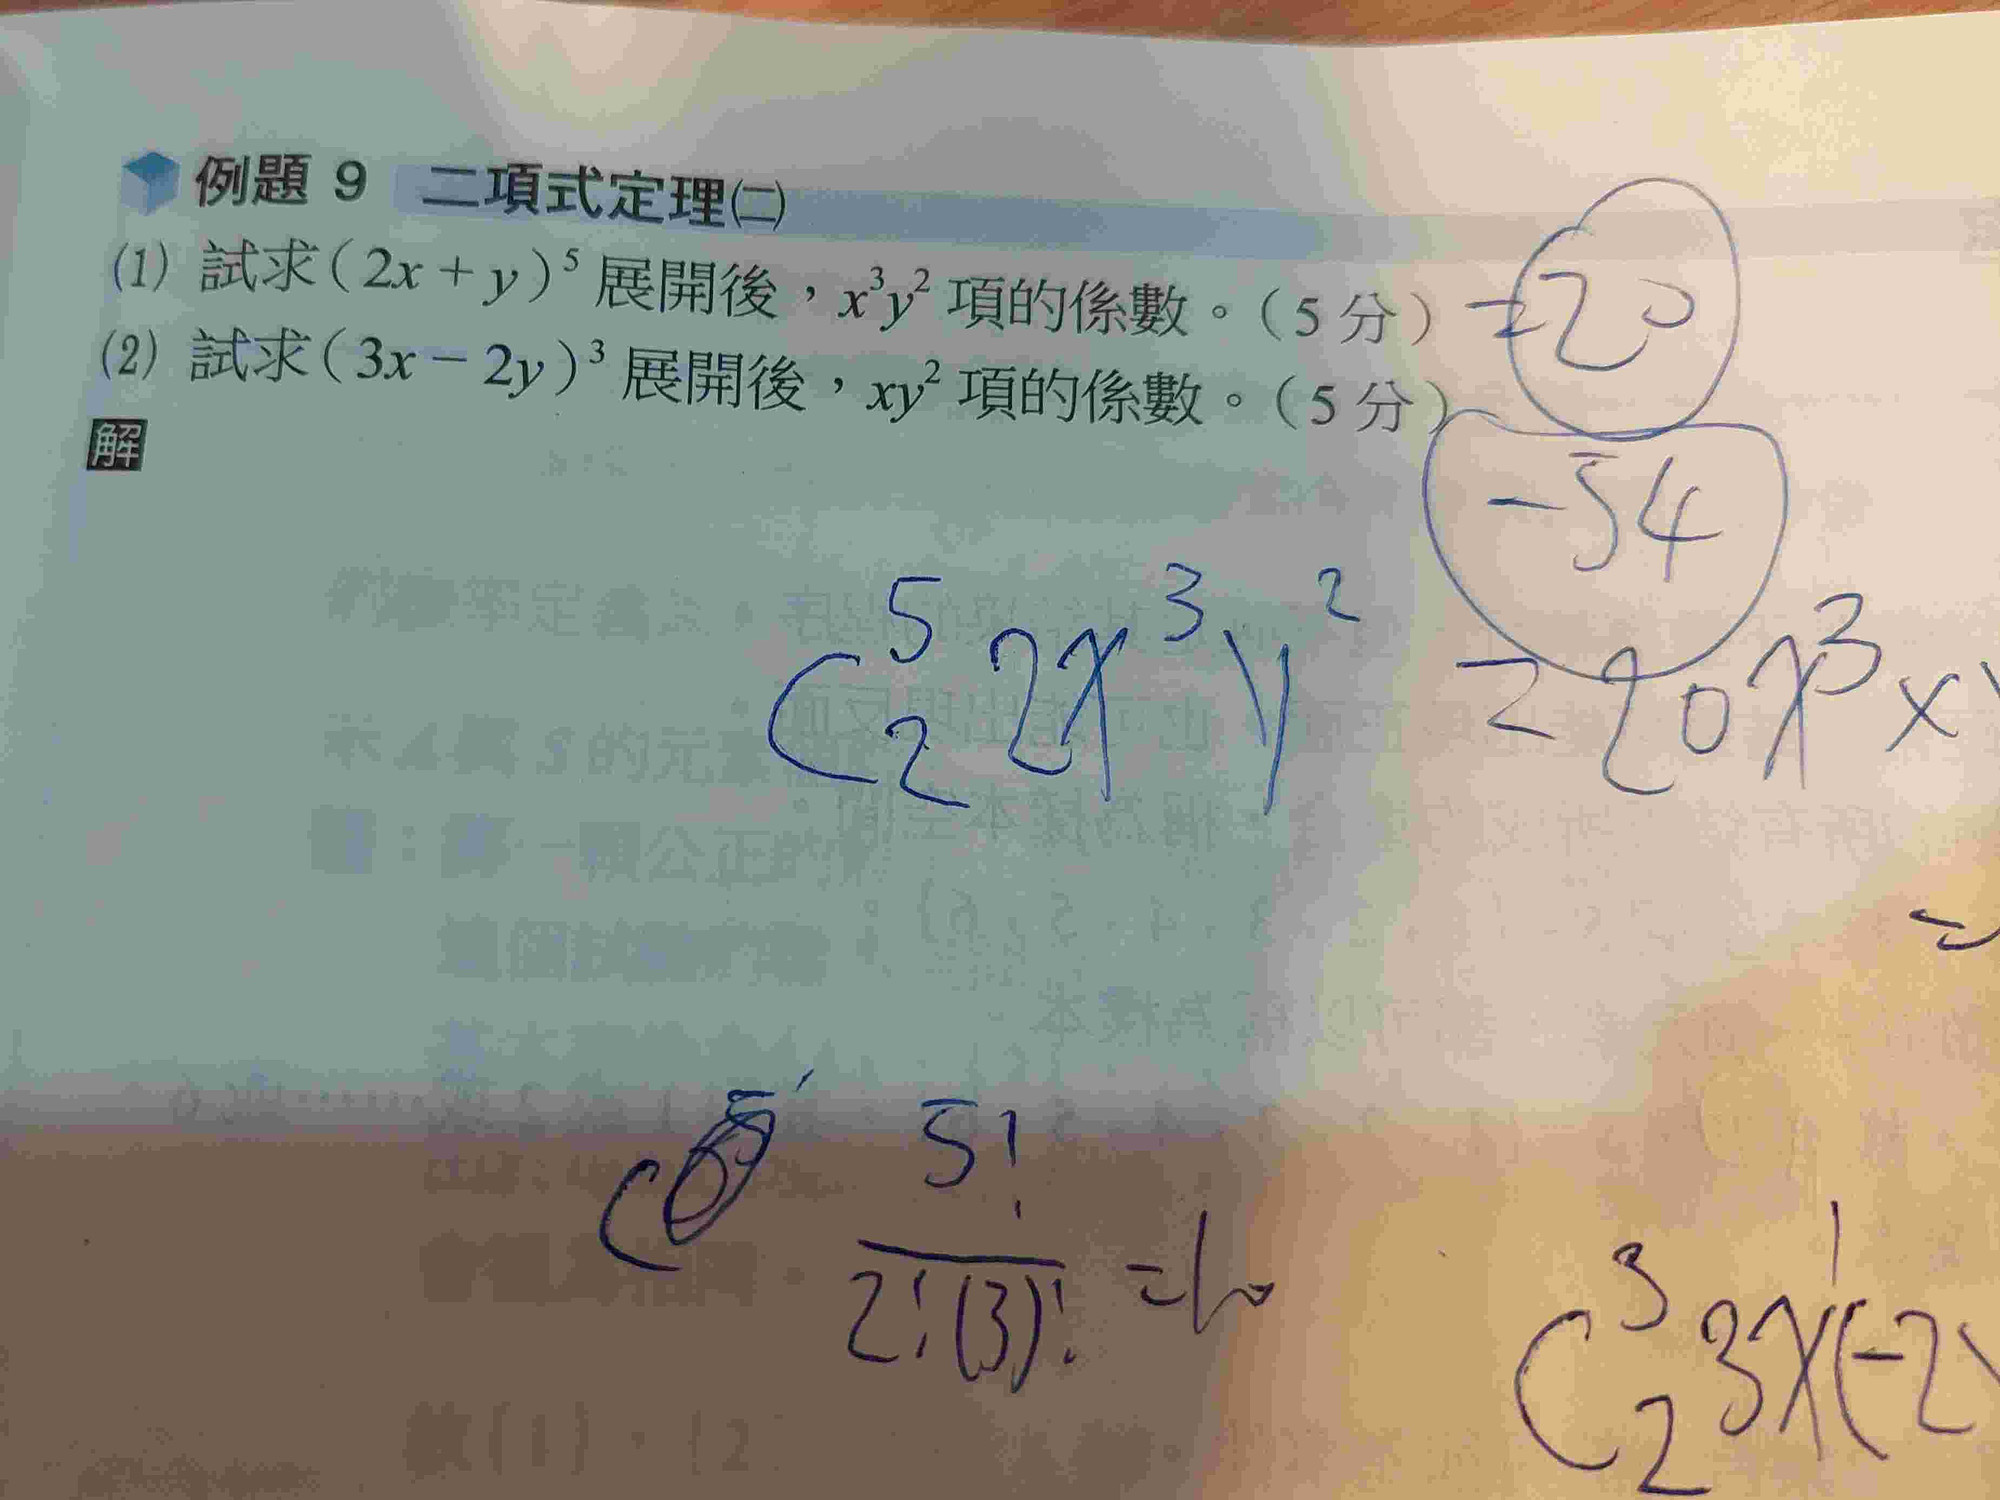 例題 9 二項式定理㈡
(1) 試求(2x + y)⁵ 展開後，x³y² 項的係數。(5 分) =20
(2) 試求(3x − 2y)³ 展開後，xy² 項的係數。(5 分)
-54
解
C⁵₂ 2x³ y² = 20x³ x
=
C 5!
2!(3)! =10
C³₂ 3x¹(-2